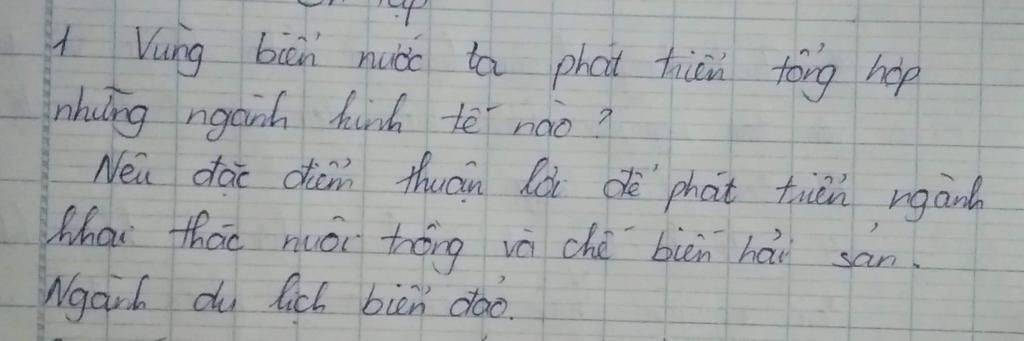 Ôn tập
1 Vùng biển nước ta phát triển tổng hợp
những ngành kinh tế nào?
Nêu đặc điểm thuận lợi để phát triển ngành
khai thác nuôi trồng và chế biến hải sản.
Ngành du lịch biển đảo.